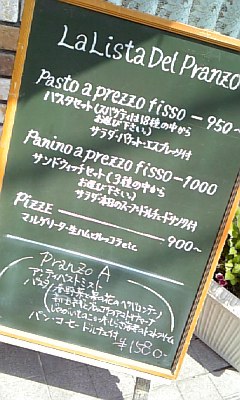 La Lista Del Pranzo
Pasto a prezzo fisso - 950~
パスタセット(スパゲティは18種の中から
お選び下さい)
サラダ・バケット・エスプレッソ付
Panino a prezzo fisso - 1000
サンドウィッチセット(3種の中から
お選び下さい)
サラダ・本日のスープ・ドルチェ・ドリンク付
PIZZE 900~
マルゲリータ・生ハムとルッコラ etc
Pranzo A
アンティパストミスト
パスタ
パン・コーヒー・ドルチェ付 ¥1580-